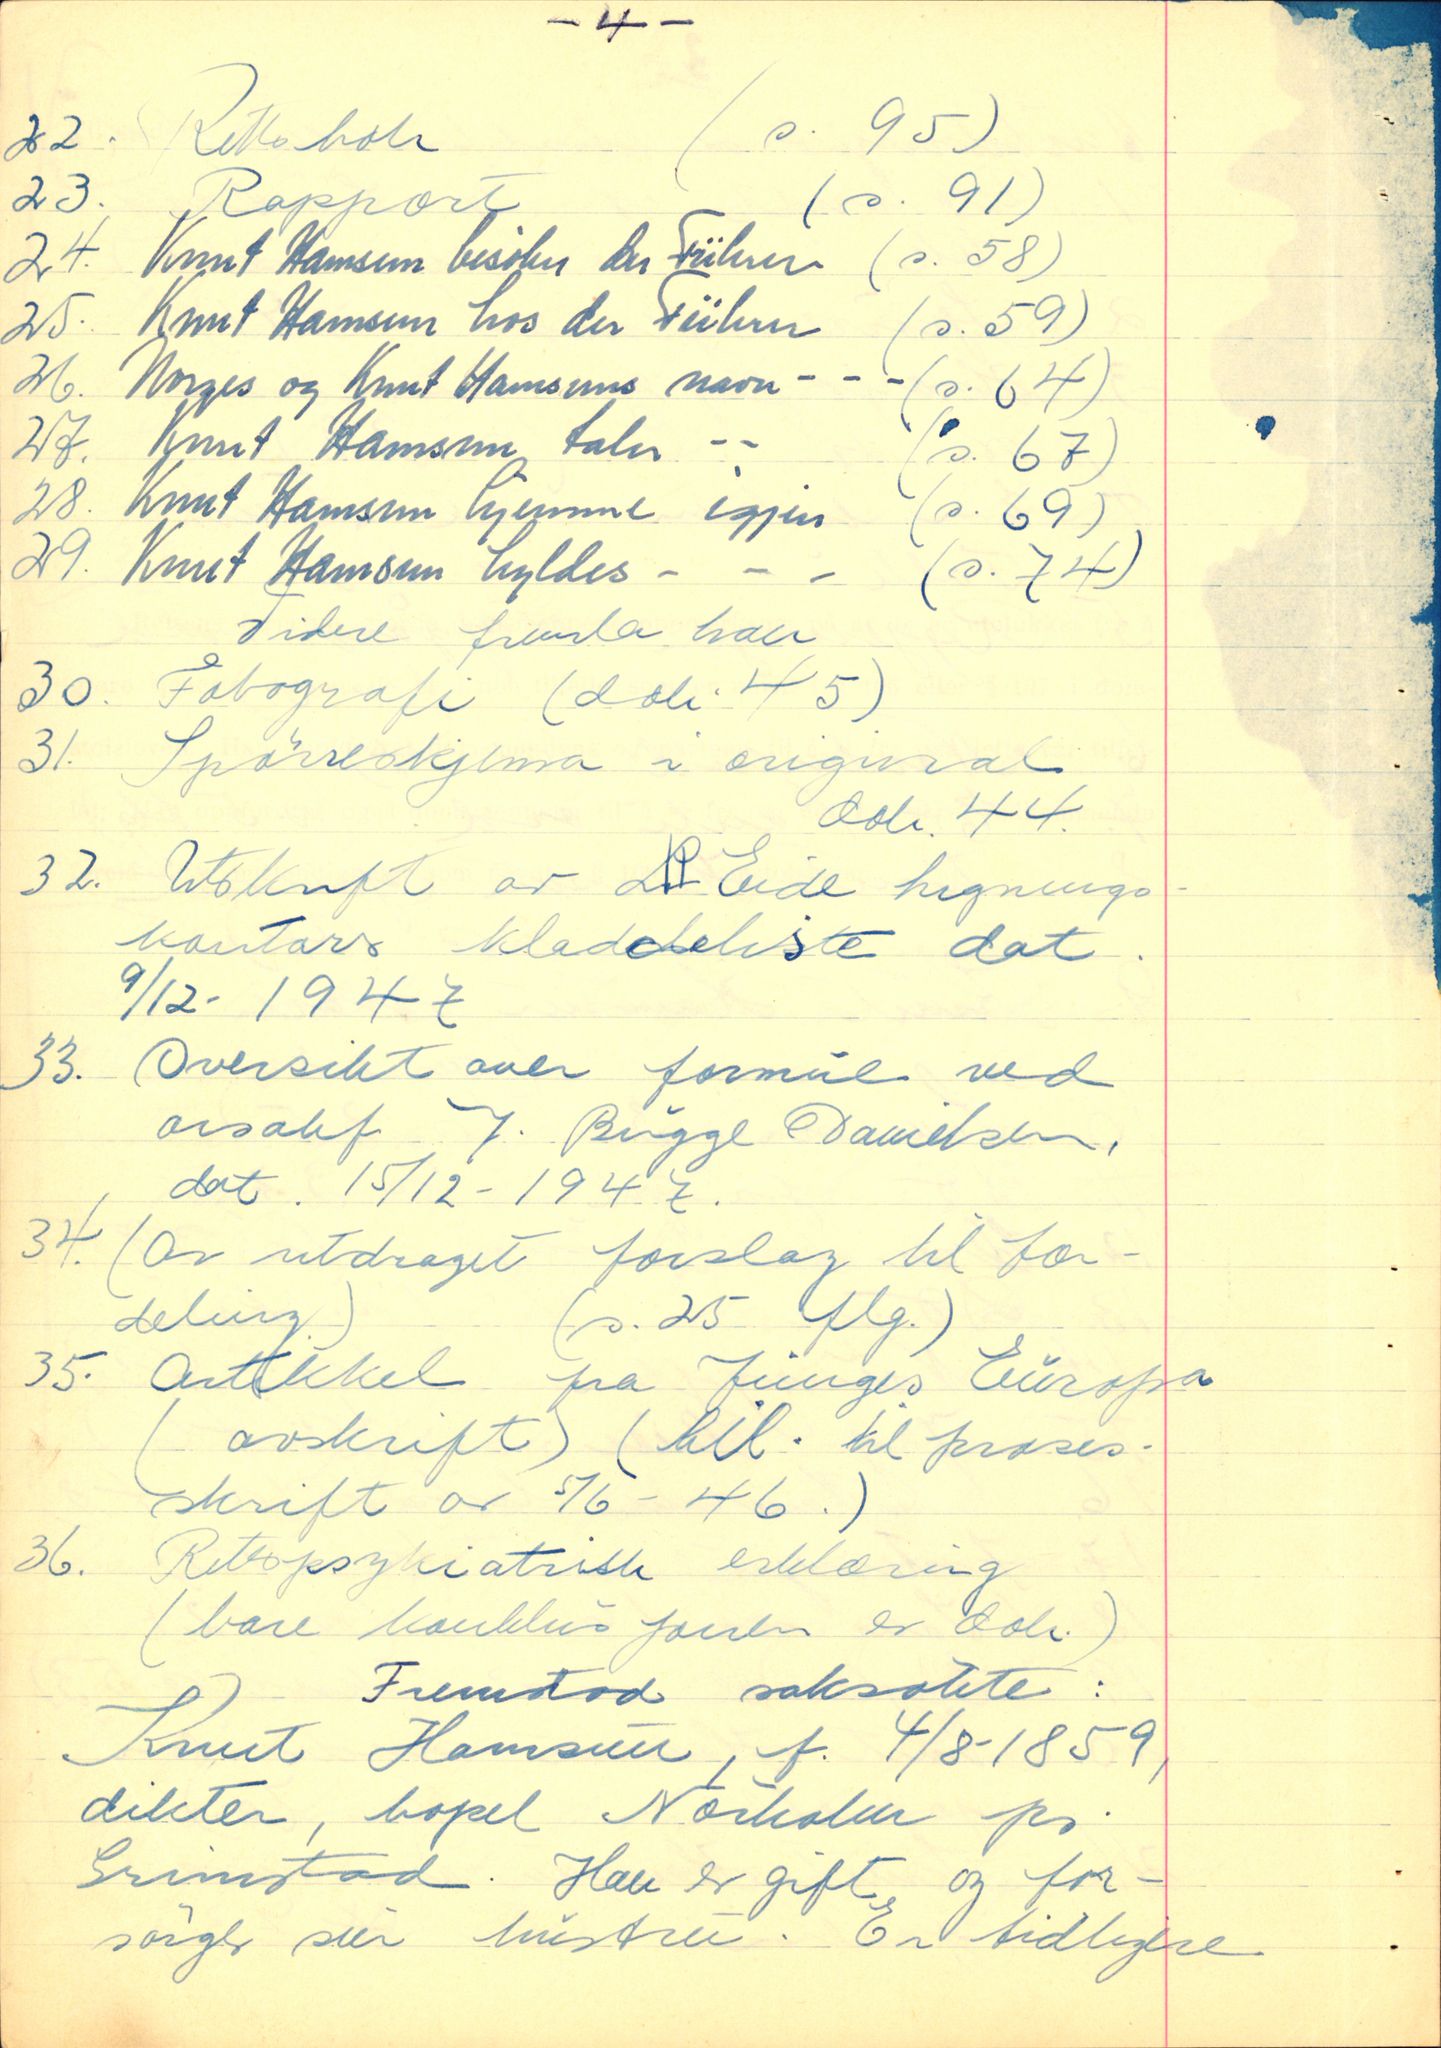 - 4 -
22. Rettsbok (s. 95)
23. Rapport (s. 91)
24. Knut Hamsun besöker der Führer (s. 58)
25. Knut Hamsun hos der Führer (s. 59)
26. Norges og Knut Hamsuns navn - - - (s. 64)
27. Knut Hamsun taler - - (s. 67)
28. Knut Hamsun hjemme igjen (s. 69)
29. Knut Hamsun hyldes - - - (s. 74)
Videre fremla han
30. Fotografi (dok. 45)
31. Spörreskjema i original
dok. 44.
32. Utskrift av Eide lignings-
kontors kladdeliste dat.
9/12- 1947
33. Oversikt over formue ved
o.r.sakf. J. Bugge Danielsen,
dat. 15/12- 1947.
34. (Av utdraget forslag til for-
deling) (s. 25 flg.)
35. Artikkel fra Junges Europa
(avskrift) (bil. til proses-
skrift av 5/6- 46.)
36. Rettspsykiatrisk erklæring
(bare konklusjonen er dok.)
Fremstod saksökte:
Knut Hamsun, f. 4/8-1859,
dikter, bopel Nörholm pr.
Grimstad. Han er gift og for-
sörger sin hustru. Er tidligere